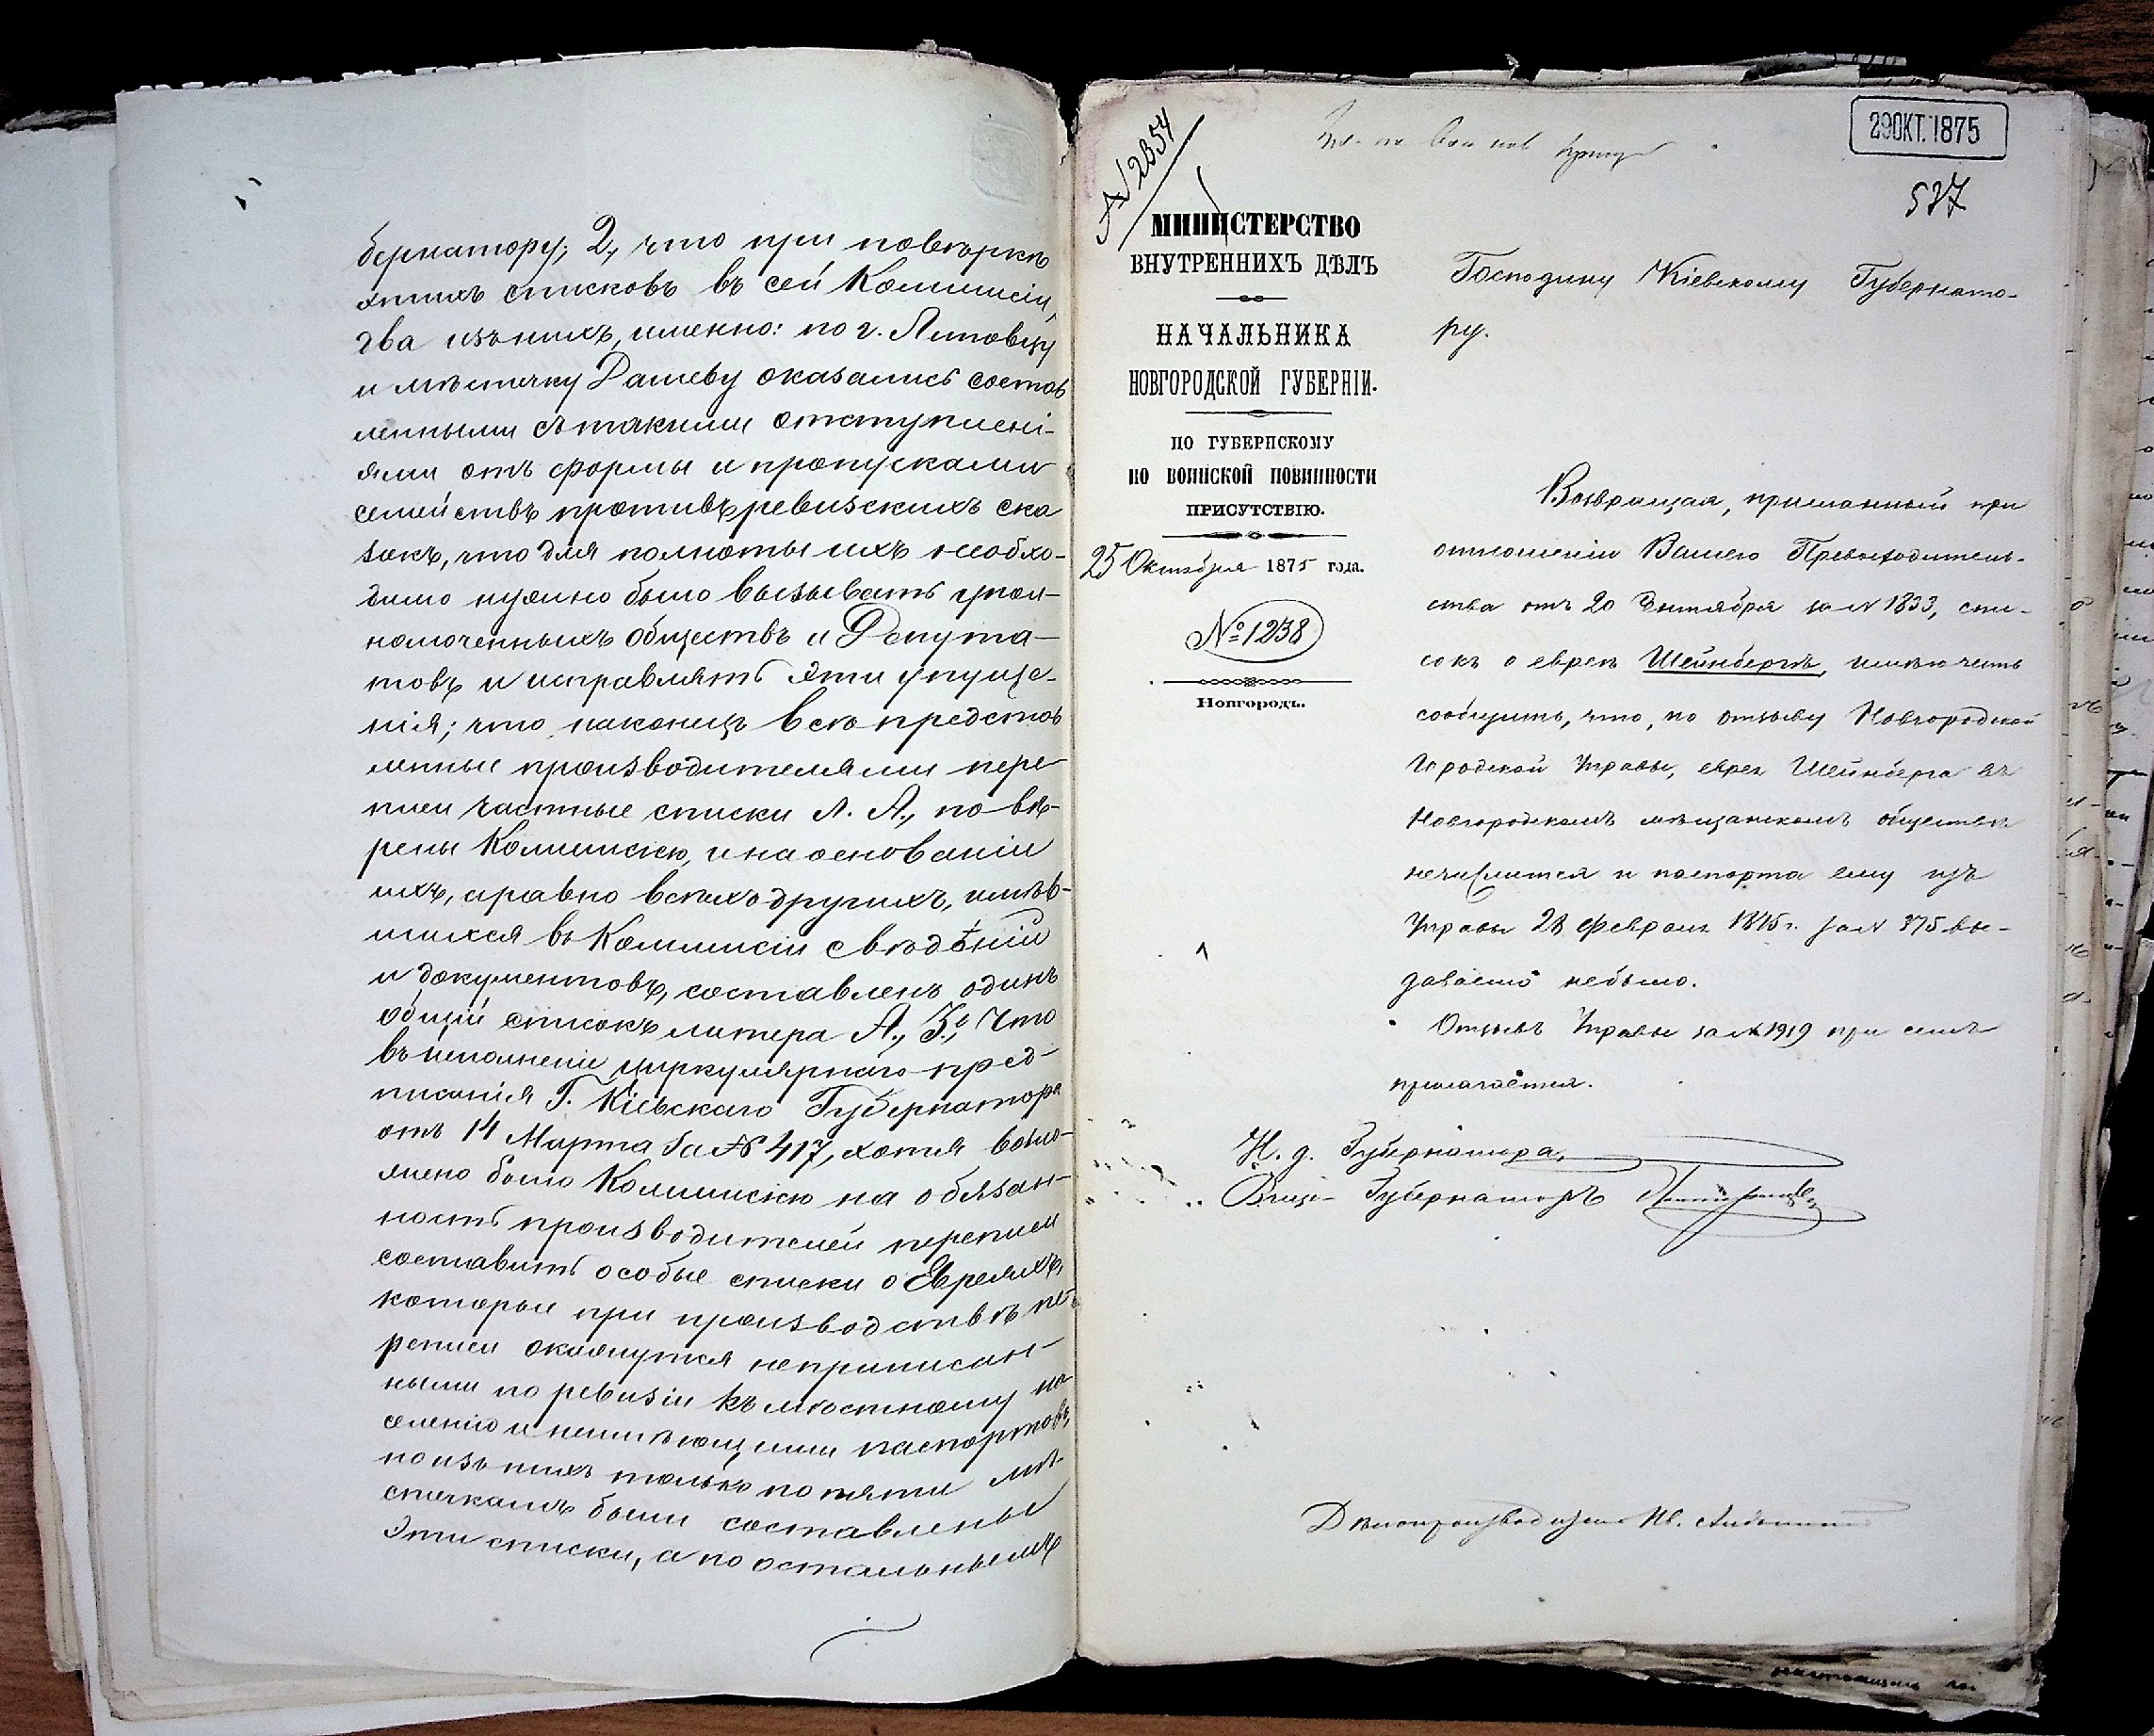 бернатору; 2., что при повѣркѣ
этихъ списковъ въ сей Коммисіи,
два изъ нихъ, именно: по г. Липовцу
и мѣстечку Дашеву оказались состав
ленными съ такими отступлені-
ями отъ формы и пропусками
семействъ противъ ревизскихъ ска
зокъ, что для полноты ихъ необхо-
димо нужно было вызывать упол-
номоченныхъ обществъ и Депута-
товъ и исправлять эти упуще-
нія; что, наконецъ всѣ представ
ленные производителями пере
писи частные списки Л. А., повѣ-
рены Коммисіею, и на основаніи
ихъ, а равно всѣхъ другихъ, имѣв-
шихся въ Коммисіи свѣдѣній
и документовъ, составленъ одинъ
общій списокъ литера А., 3., Что
въ исполненіе циркулярнаго пред-
писанія Г. Кіевскаго Губернатора
отъ 14 Марта за № 417, хотя возло-
жено было Коммисіею на обязан-
ность производителей переписи
составить особые списки о Евреяхъ,
которые при производствѣ пе-
реписи окажутся неприписан-
ными по ревизіи къ мѣстному на
селенію и неимѣющими паспортовъ,
но изъ нихъ только по пяти мѣ-
стечкамъ были составлены
Эти списки, а по остальнымъ
№ 2354
29 ОКТ. 1875
537
МИНИСТЕРСТВО
ВНУТРЕННИХЪ ДѢЛЪ
НАЧАЛЬНИКА
НОВГОРОДСКОЙ ГУБЕРНІИ.
ПО ГУБЕРНСКОМУ
ПО ВОИНСКОЙ ПОВИННОСТИ
ПРИСУТСТВІЮ.
25 Октября 1875 года.
№ 1238
Новгородъ.
Господину Кіевскому Губернато-
ру.
Возвращая, присланный при
отношеніи Вашего Превосходитель-
ства отъ 20 Сентября за № 1833, спи-
сокъ о евреѣ Шейнбергѣ, имѣю честь
сообщить, что, по отзыву Новгородской
Городской Управы, еврея Шейнберга въ
Новгородскомъ мѣщанскомъ обществѣ
нечислится и паспорта ему изъ
Управы 28 февраля 1875 г. за № 375 вы-
даваемо небыло.
Отзывъ Управы за № 1919 при семъ
прилагается.
И. д. Губернатора,
Вице-Губернаторъ
Дѣлопроизводитель